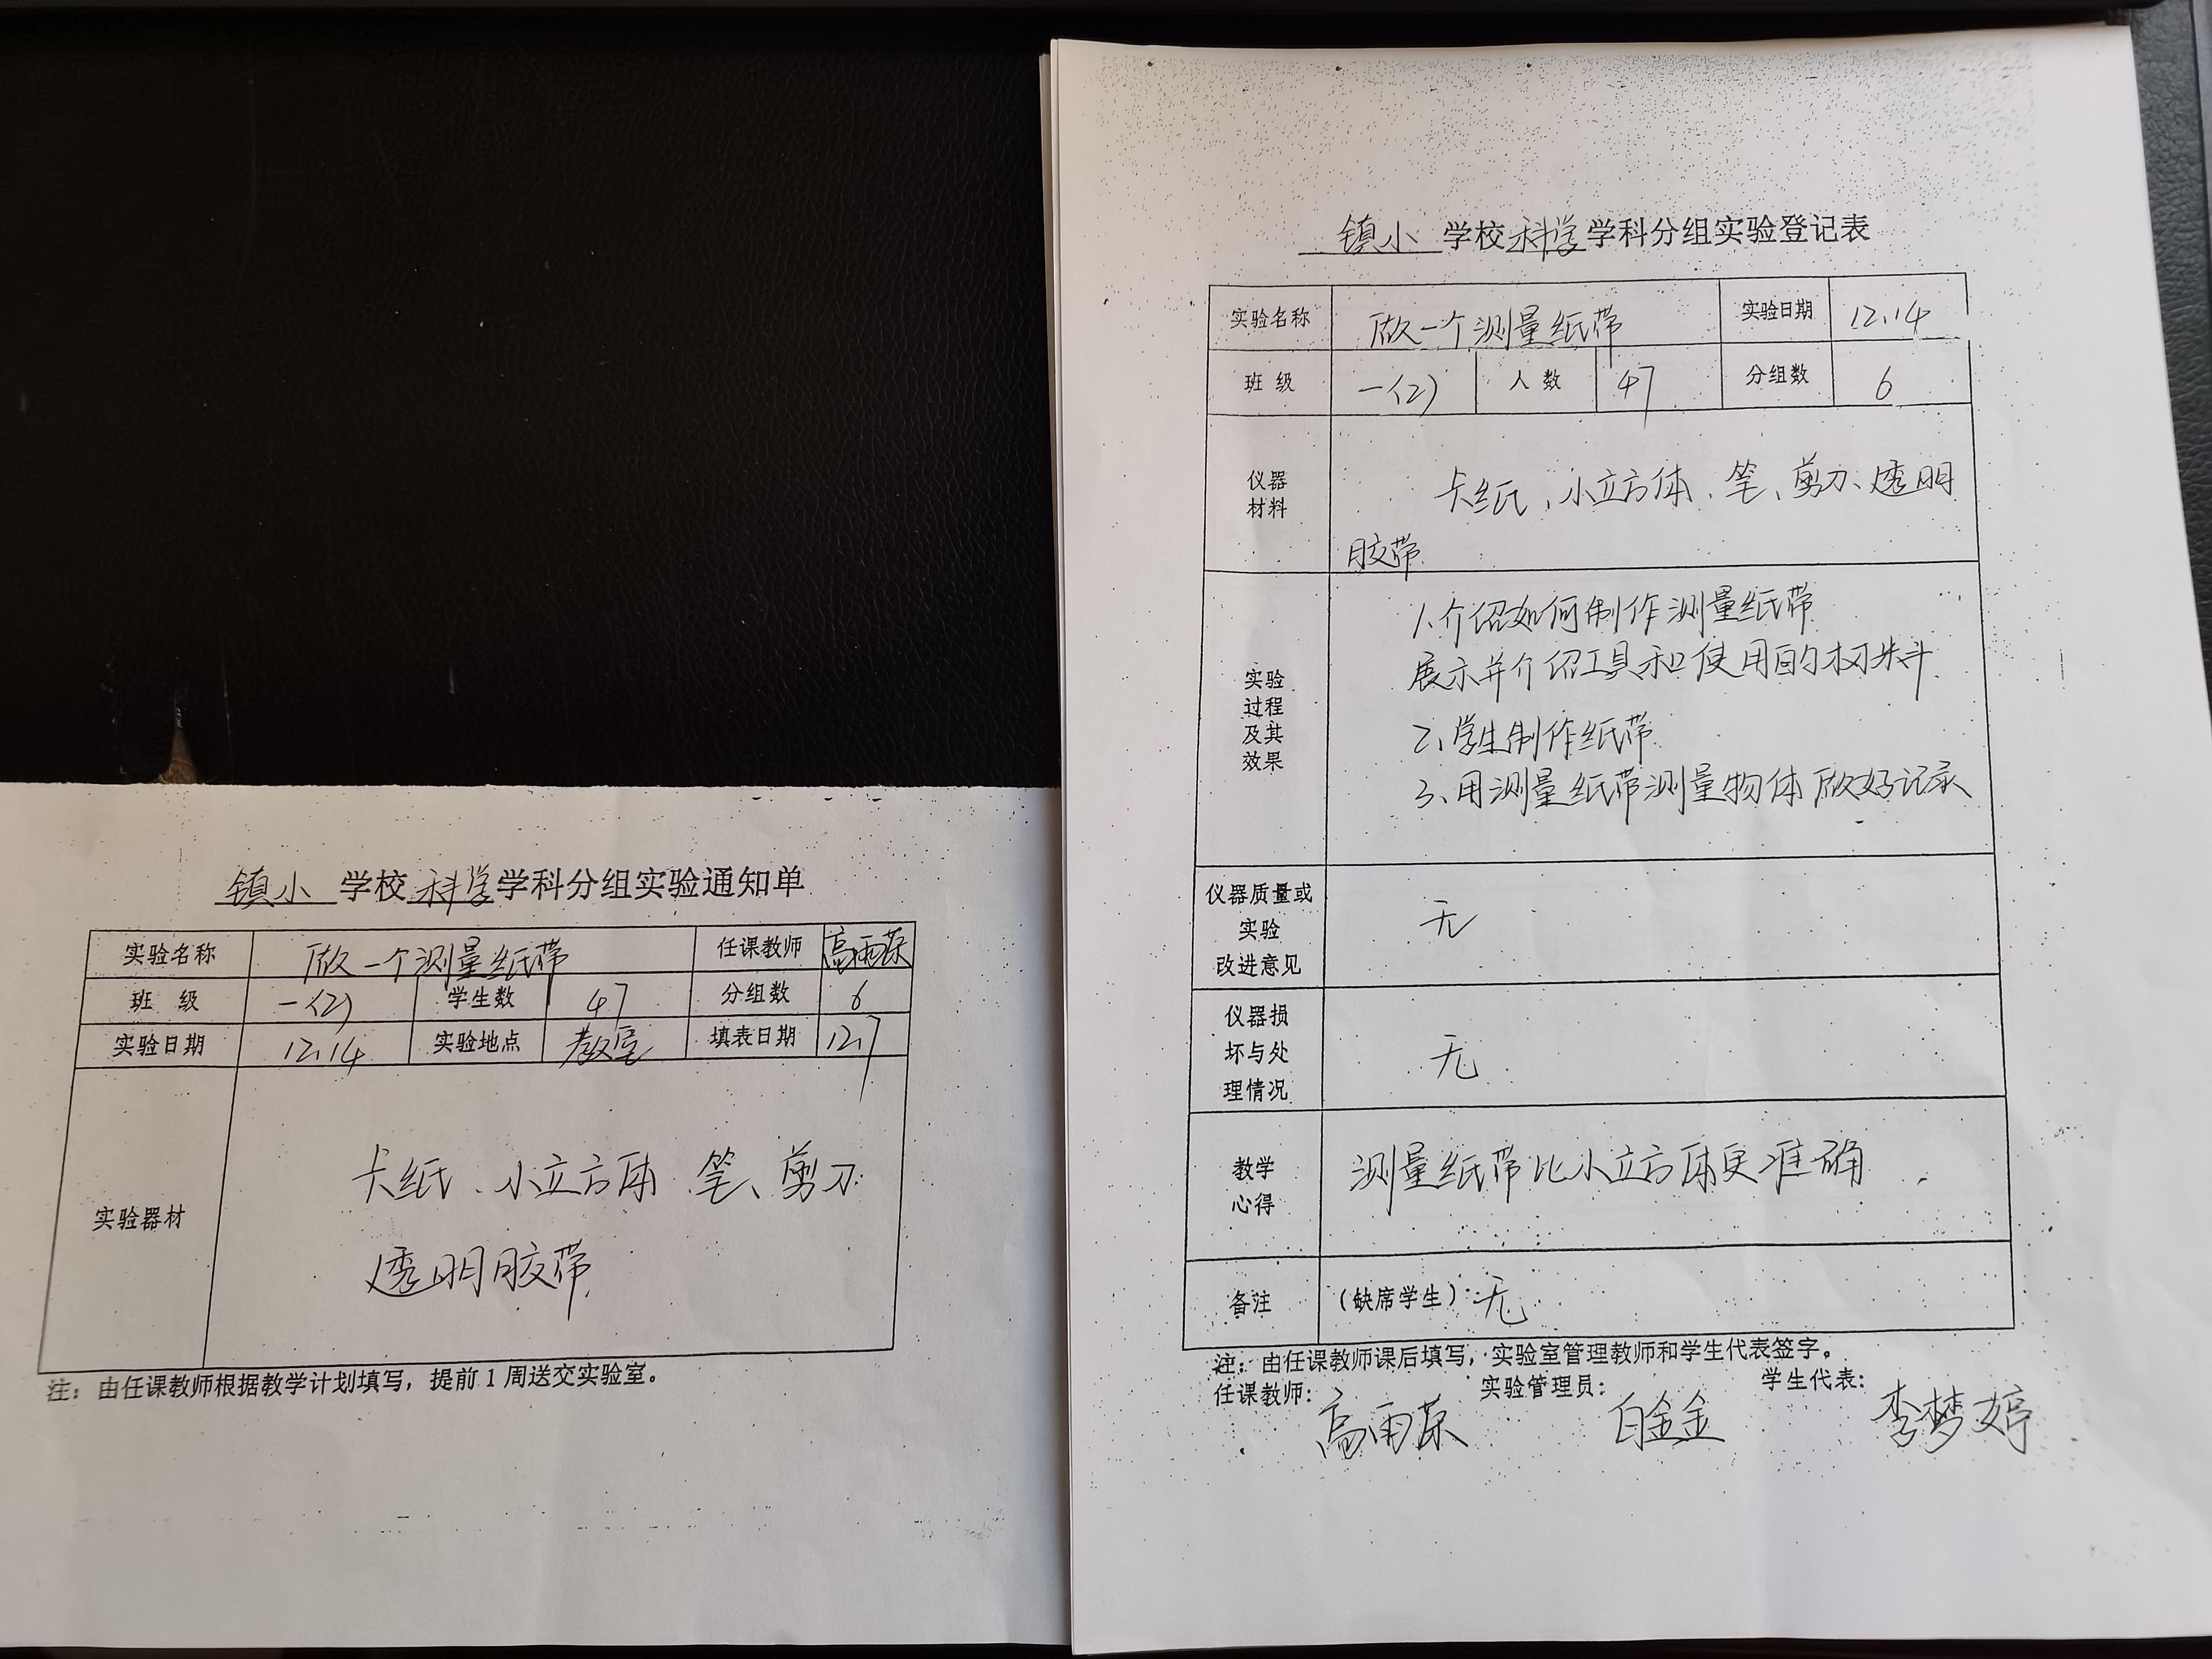 镇小 学校 科学 学科分组实验通知单
实验名称 做一个测量纸带 任课教师 高雨荣
班 级 一(2) 学生数 47 分组数 6
实验日期 12.14 实验地点 教室 填表日期 12.7
实验器材
卡纸、小立方体、笔、剪刀
透明胶带
注：由任课教师根据教学计划填写，提前1周送交实验室。
镇小 学校 科学 学科分组实验登记表
实验名称 做一个测量纸带 实验日期 12.14
班 级 一(2) 人 数 47 分组数 6
仪器
材料
卡纸、小立方体、笔、剪刀、透明
胶带
实验
过程
及其
效果
1、介绍如何制作测量纸带
展示并介绍工具和使用的材料
2、学生制作纸带
3、用测量纸带测量物体做好记录
仪器质量或
实验
改进意见
无
仪器损
坏与处
理情况
无
教学
心得
测量纸带比小立方体更准确
备注 (缺席学生)：无
注：由任课教师课后填写，实验室管理教师和学生代表签字。
任课教师： 实验管理员： 学生代表：
高雨荣 白金金 李梦婷